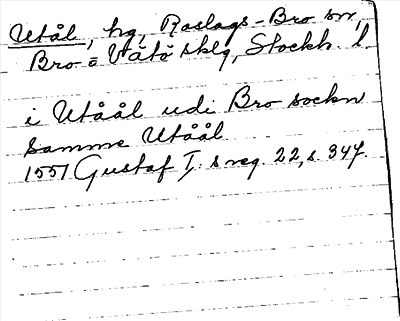 Utål, hg, Roslags-Bro sn,
Bro o Vätö sklg, Stockh. l.
i Utåål udi Bro sockn
samme Utåål
1551 Gustaf I:s reg. 22, s. 347.